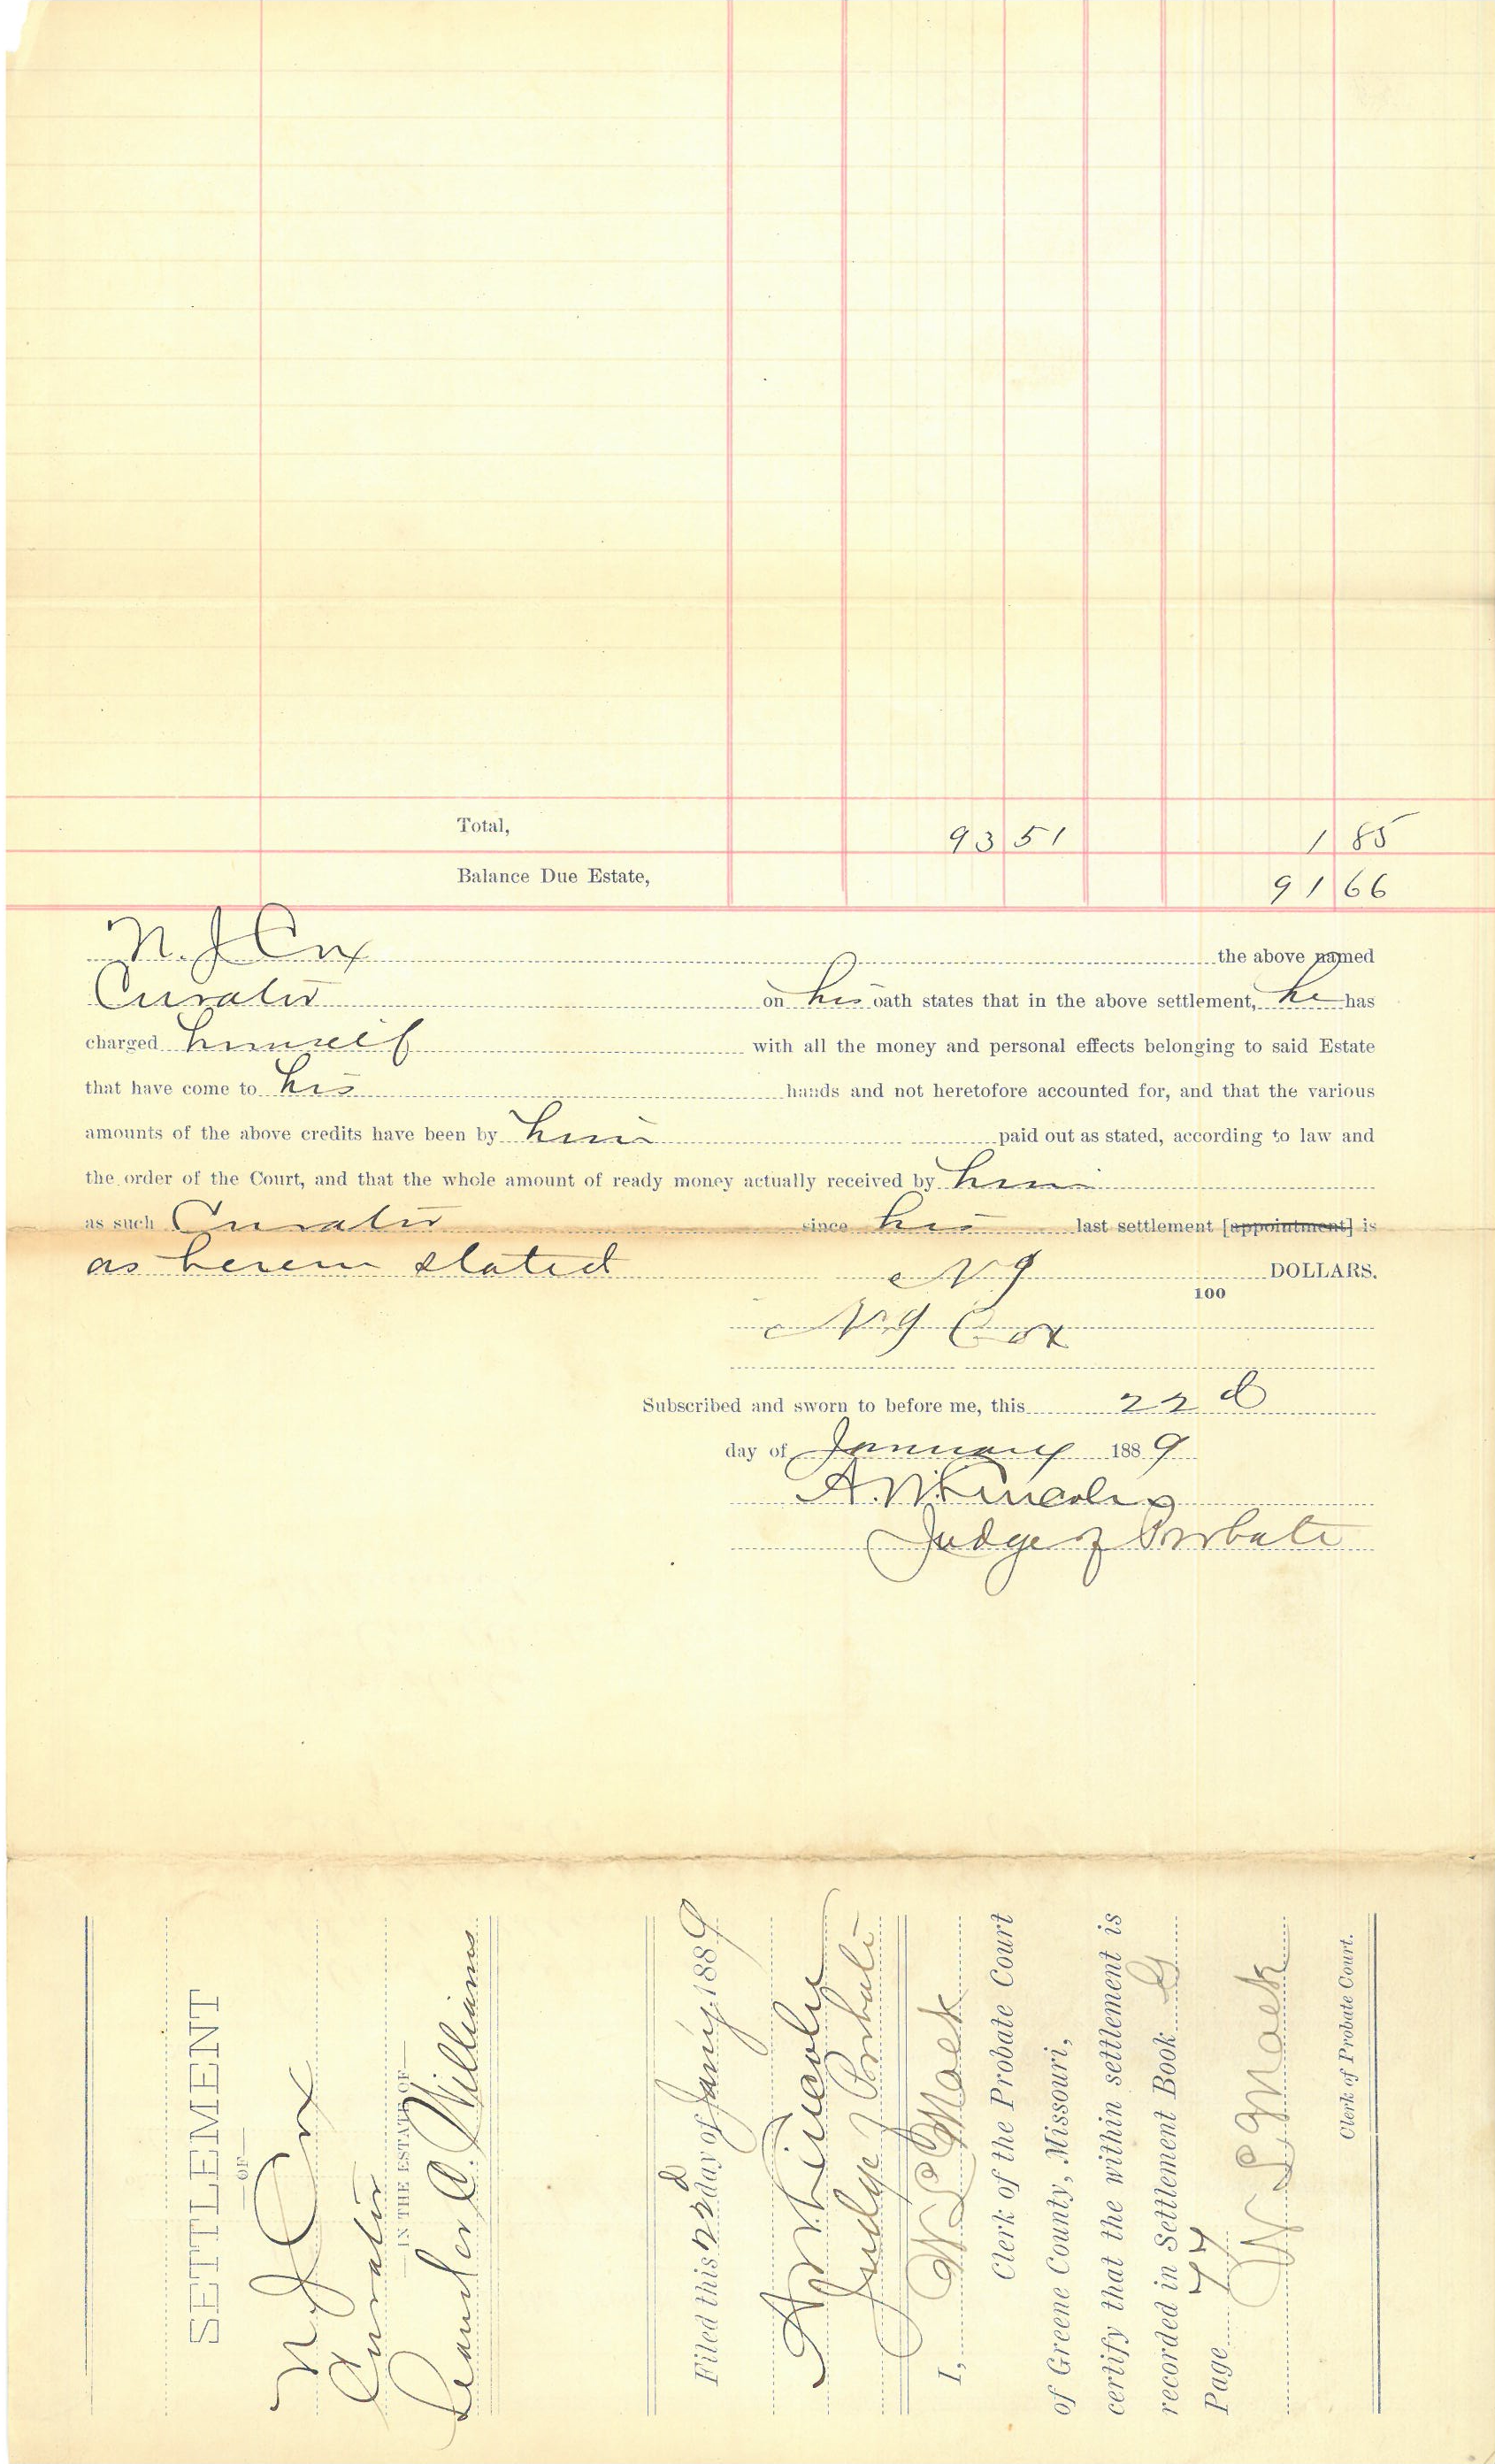 Total, 93 51 1 85
Balance Due Estate, 91 66
N. J Cox the above named
Curator on his oath states that in the above settlement, he has
charged himself with all the money and personal effects belonging to said Estate
that have come to his hands and not heretofore accounted for, and that the various
amounts of the above credits have been by him paid out as stated, according to law and
the order of the Court, and that the whole amount of ready money actually received by him
as such Curator since his last settlement [appointment] is
as herein stated N J DOLLARS.
100
N. J Cox
Subscribed and sworn to before me, this 22d
day of January 1889
A. W. Lincoln
Judge of Probate
SETTLEMENT
—OF—
N. J Cox
Curator
—IN THE ESTATE OF—
Leander A. Williams
Filed this 22d day of Jany. 1889
A W Lincoln
Judge of Probate
I, W L Mack
Clerk of the Probate Court
of Greene County, Missouri,
certify that the within settlement is
recorded in Settlement Book G
Page 77
W L Mack
Clerk of Probate Court.